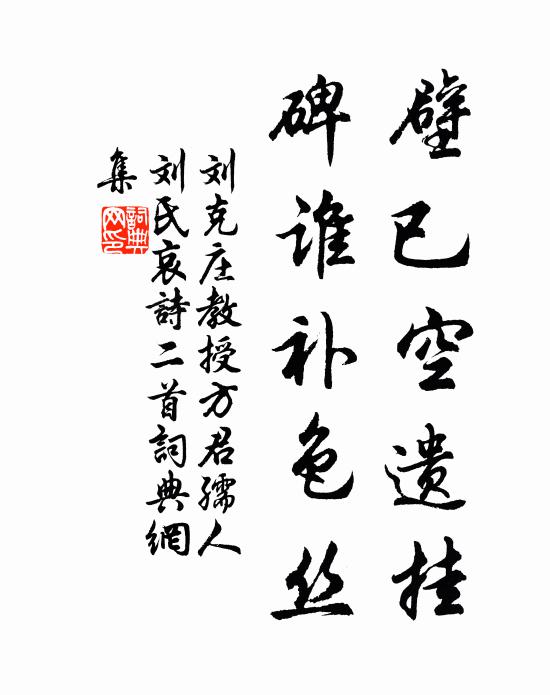 壁已空遗挂
碑谁补色丝
刘克庄教授方君孺人
刘氏哀詩二首詞典網
集
詞典网印